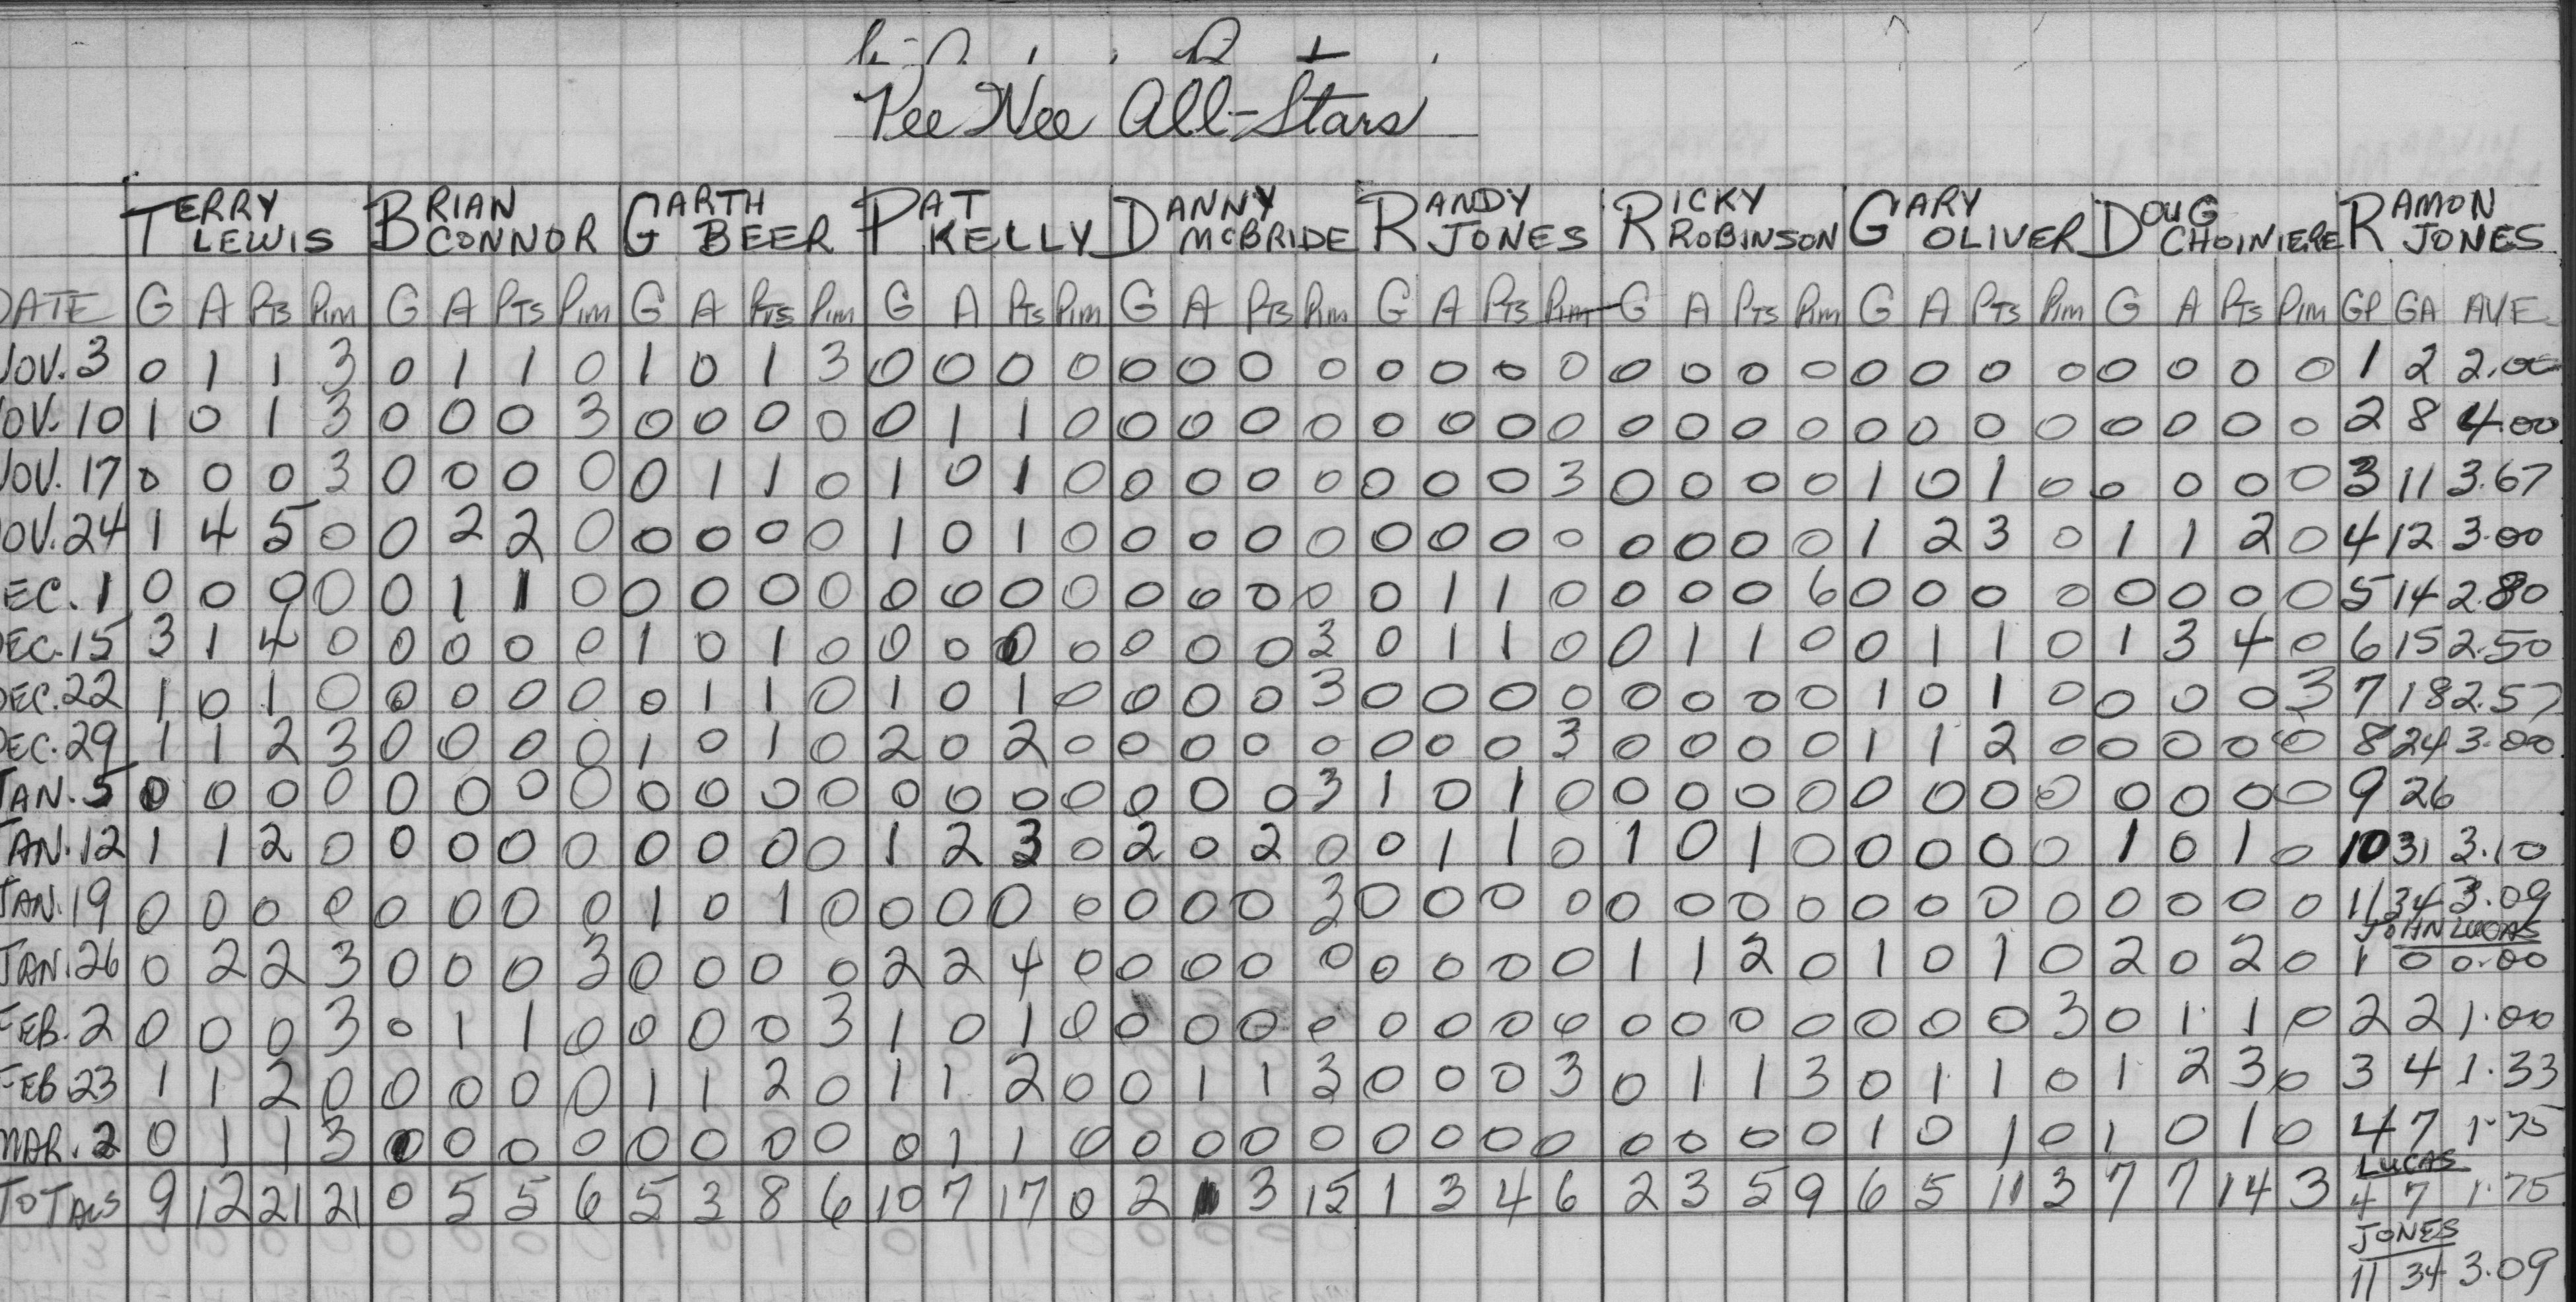 Pee Wee All-Stars
TERRY LEWIS BRIAN CONNOR GARTH BEER PAT KELLY DANNY McBRIDE RANDY JONES RICKY ROBINSON GARY OLIVER DOUG CHOINIERE RAMON JONES
DATE G A Pts Pim G A PTS Pim G A Pts Pim G A Pts Pim G A Pts Pim G A Pts Pim G A Pts Pim G A Pts Pim G A Pts Pim GP GA AVE
NOV. 3 0 1 1 3 0 1 1 0 1 0 1 3 0 0 0 0 0 0 0 0 0 0 0 0 0 0 0 0 0 0 0 0 0 0 0 0 1 2 2.00
NOV. 10 1 0 1 3 0 0 0 3 0 0 0 0 0 1 1 0 0 0 0 0 0 0 0 0 0 0 0 0 0 0 0 0 0 0 0 0 2 8 4.00
NOV. 17 0 0 0 3 0 0 0 0 0 1 1 0 1 0 1 0 0 0 0 0 0 0 0 3 0 0 0 0 1 0 1 0 0 0 0 0 3 11 3.67
NOV. 24 1 4 5 0 0 2 2 0 0 0 0 0 1 0 1 0 0 0 0 0 0 0 0 0 0 0 0 0 1 2 3 0 1 1 2 0 4 12 3.00
DEC. 1 0 0 0 0 0 1 1 0 0 0 0 0 0 0 0 0 0 0 0 0 0 1 1 0 0 0 0 6 0 0 0 0 0 0 0 0 5 14 2.80
DEC. 15 3 1 4 0 0 0 0 0 1 0 1 0 0 0 0 0 0 0 0 3 0 1 1 0 0 1 1 0 0 1 1 0 1 3 4 0 6 15 2.50
DEC. 22 1 0 1 0 0 0 0 0 0 1 1 0 1 0 1 0 0 0 0 3 0 0 0 0 0 0 0 0 1 0 1 0 0 0 0 3 7 18 2.57
DEC. 29 1 1 2 3 0 0 0 0 1 0 1 0 2 0 2 0 0 0 0 0 0 0 0 3 0 0 0 0 1 1 2 0 0 0 0 0 8 24 3.00
JAN. 5 0 0 0 0 0 0 0 0 0 0 0 0 0 0 0 0 0 0 0 3 1 0 1 0 0 0 0 0 0 0 0 0 0 0 0 0 9 26
JAN. 12 1 1 2 0 0 0 0 0 0 0 0 0 1 2 3 0 2 0 2 0 0 1 1 0 1 0 1 0 0 0 0 0 1 0 1 0 10 31 3.10
JAN. 19 0 0 0 0 0 0 0 0 1 0 1 0 0 0 0 0 0 0 0 3 0 0 0 0 0 0 0 0 0 0 0 0 0 0 0 0 11 34 3.09
JOHN LUCAS
JAN. 26 0 2 2 3 0 0 0 3 0 0 0 0 2 2 4 0 0 0 0 0 0 0 0 0 1 1 2 0 1 0 1 0 2 0 2 0 1 0 0.00
FEB. 2 0 0 0 3 0 1 1 0 0 0 0 3 1 0 1 0 0 0 0 0 0 0 0 0 0 0 0 0 0 0 0 3 0 1 1 0 2 2 1.00
FEB 23 1 1 2 0 0 0 0 0 1 1 2 0 1 1 2 0 0 1 1 3 0 0 0 3 0 1 1 3 0 1 1 0 1 2 3 0 3 4 1.33
MAR. 2 0 1 1 3 0 0 0 0 0 0 0 0 0 1 1 0 0 0 0 0 0 0 0 0 0 0 0 0 1 0 1 0 1 0 1 0 4 7 1.75
LUCAS
TOTALS 9 12 21 21 0 5 5 6 5 3 8 6 10 7 17 0 2 1 3 15 1 3 4 6 2 3 5 9 6 5 11 3 7 7 14 3 4 7 1.75
JONES
11 34 3.09